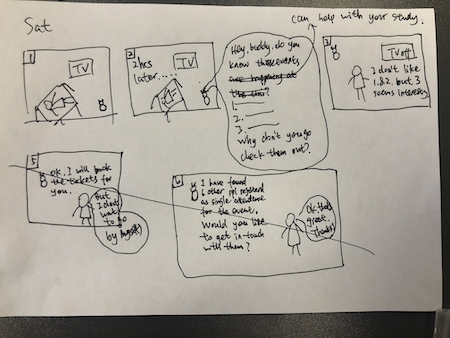 can help with your study.
Sat
1
TV
2
2 hrs
later....
TV
Hey, buddy, do you
know these events
are happening at
1.
2.
3.
why don't you go
check them out?
3
TV off
I don't like
1 & 2. but 3
seems interesting
5
ok, I will book
the tickets for
you.
but
I don't
want
to go
by myself!
6
I have found
6 other ppl
as single attendance
for the event.
Would you like
to get in-touch
with them?
Ok, that's
great.
Thanks!